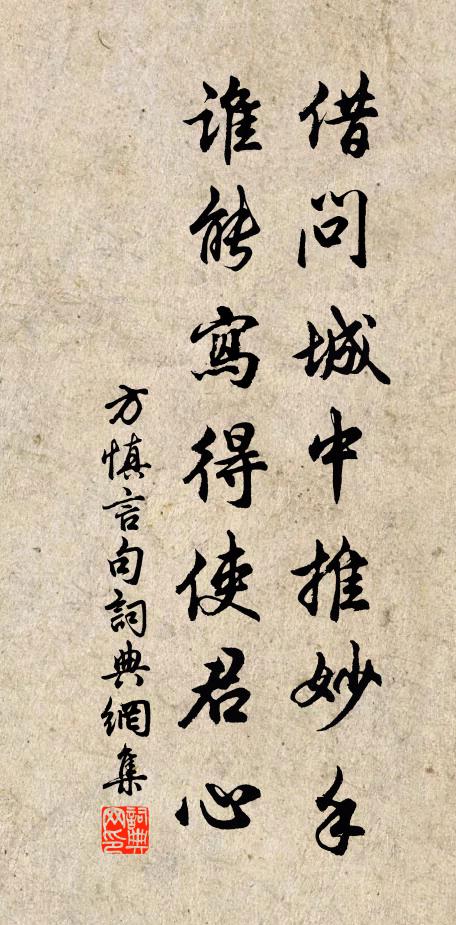 借問城中推妙手
誰能寫得使君心
方慎言句詞典網集
詞典网印